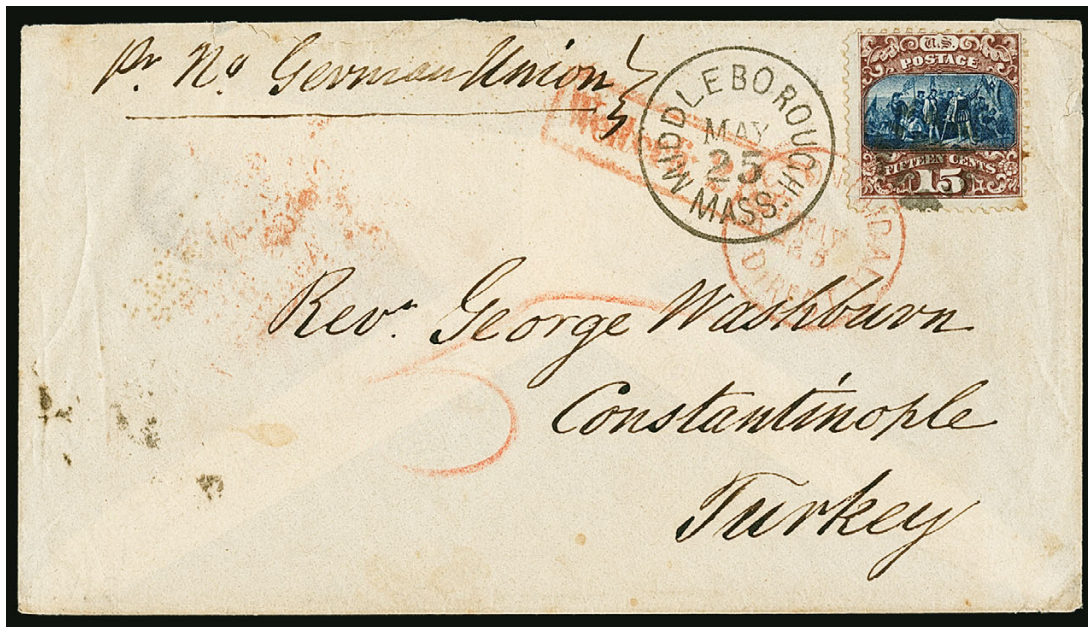 Pr No German Union
MIDDLEBOROUGH
MAY
25
MASS.
U.S.
POSTAGE
FIFTEEN CENTS
15
MAY
DIRECT
Rev. George Washburn
Constantinople
Turkey
5